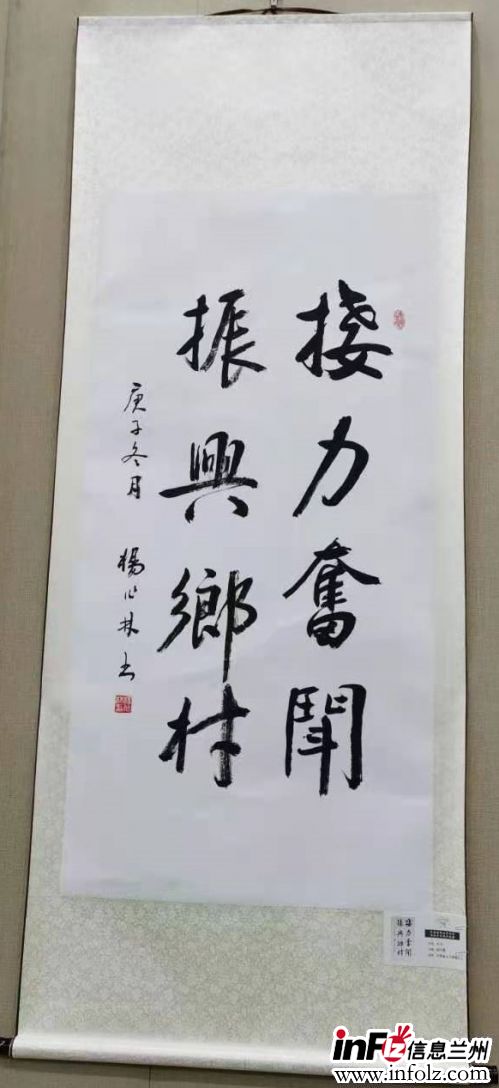 接力奮鬥
振興鄉村
庚子冬月 楊心林书
接力奮鬥
振興鄉村
inflz信息兰州
www.infolz.com